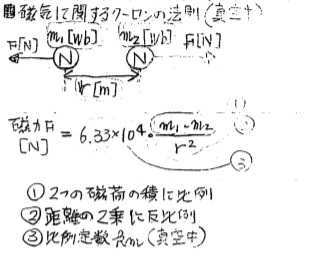 磁気に関するクーロンの法則(真空中)
F[N] m₁[Wb] m₂[Wb] F[N]
N N
r[m]
磁力F[N] = 6.33×10⁴・m₁-m₂/r²
①
②
③
①2つの磁荷の積に比例
②距離の2乗に反比例
③比例定数km(真空中)